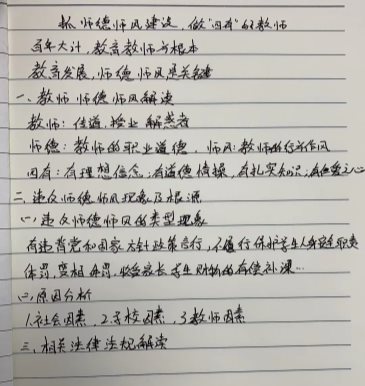 抓师德师风建设，做"四有"好教师
百年大计，教育教师为根本
教育发展，师德师风是关键
一、教师师德师风解读
教师：传道、授业、解惑者
师德：教师的职业道德，师风：教师的行为作风
四有：有理想信念；有道德情操，有扎实知识，有仁爱之心
二、违反师德师风现象及根源
(一)违反师德师风的类型现象
有违背党和国家方针政策言行，不履行保护学生人身安全职责
体罚、变相体罚，收受家长学生财物的有偿补课…
(二)原因分析
1.社会因素，2.学校因素，3.教师因素
三、相关法律法规解读